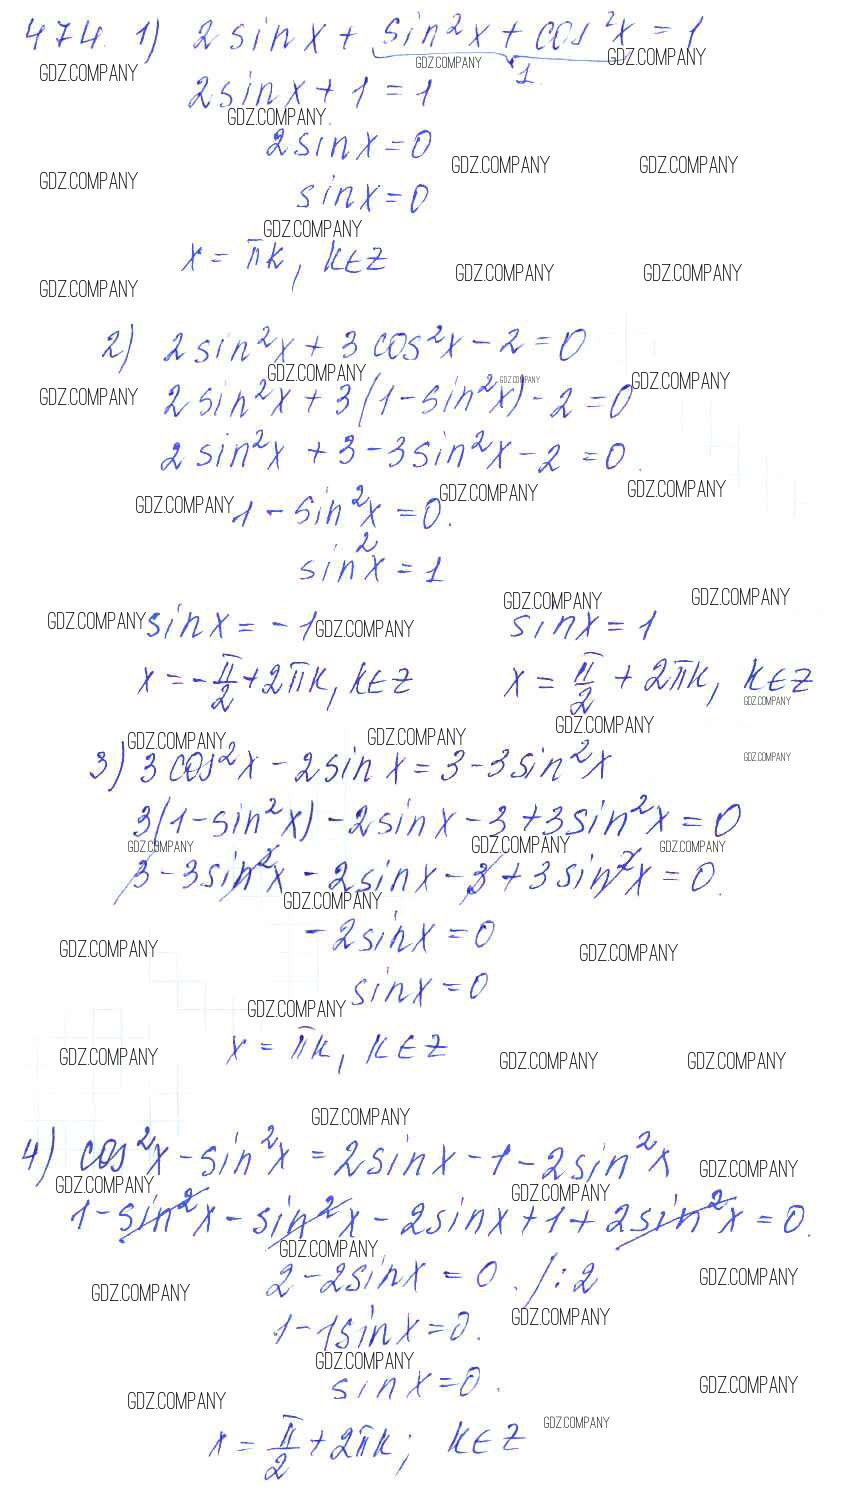 474. 1) 2 sin x + sin²x + cos²x = 1
GDZ.COMPANY GDZ.COMPANY GDZ.COMPANY
1.
2 sin x + 1 = 1
GDZ.COMPANY
2 sin x = 0
GDZ.COMPANY GDZ.COMPANY GDZ.COMPANY
sin x = 0
GDZ.COMPANY
x = πk, k∈Z
GDZ.COMPANY GDZ.COMPANY GDZ.COMPANY
2) 2 sin²x + 3 cos²x - 2 = 0
GDZ.COMPANY GDZ.COMPANY GDZ.COMPANY
GDZ.COMPANY 2 sin²x + 3(1 - sin²x) - 2 = 0
2 sin²x + 3 - 3 sin²x - 2 = 0.
GDZ.COMPANY GDZ.COMPANY GDZ.COMPANY
1 - sin²x = 0.
sin²x = 1
GDZ.COMPANY GDZ.COMPANY
GDZ.COMPANY sin x = -1 GDZ.COMPANY sin x = 1
x = -π/2 + 2πk, k∈Z x = π/2 + 2πk, k∈Z
GDZ.COMPANY
GDZ.COMPANY
GDZ.COMPANY GDZ.COMPANY GDZ.COMPANY
3) 3 cos²x - 2 sin x = 3 - 3 sin²x
3(1 - sin²x) - 2 sin x - 3 + 3 sin²x = 0
GDZ.COMPANY GDZ.COMPANY GDZ.COMPANY
3 - 3 sin²x - 2 sin x - 3 + 3 sin²x = 0.
GDZ.COMPANY
-2 sin x = 0
GDZ.COMPANY GDZ.COMPANY
sin x = 0
GDZ.COMPANY
x = πk, k∈Z
GDZ.COMPANY GDZ.COMPANY GDZ.COMPANY
GDZ.COMPANY
4) cos²x - sin²x = 2 sin x - 1 - 2 sin²x
GDZ.COMPANY GDZ.COMPANY GDZ.COMPANY
1 - sin²x - sin²x - 2 sin x + 1 + 2 sin²x = 0.
GDZ.COMPANY
2 - 2 sin x = 0. /:2
GDZ.COMPANY GDZ.COMPANY GDZ.COMPANY
1 - 1 sin x = 0.
GDZ.COMPANY
sin x = 0.
GDZ.COMPANY GDZ.COMPANY
x = π/2 + 2πk; k∈Z
GDZ.COMPANY